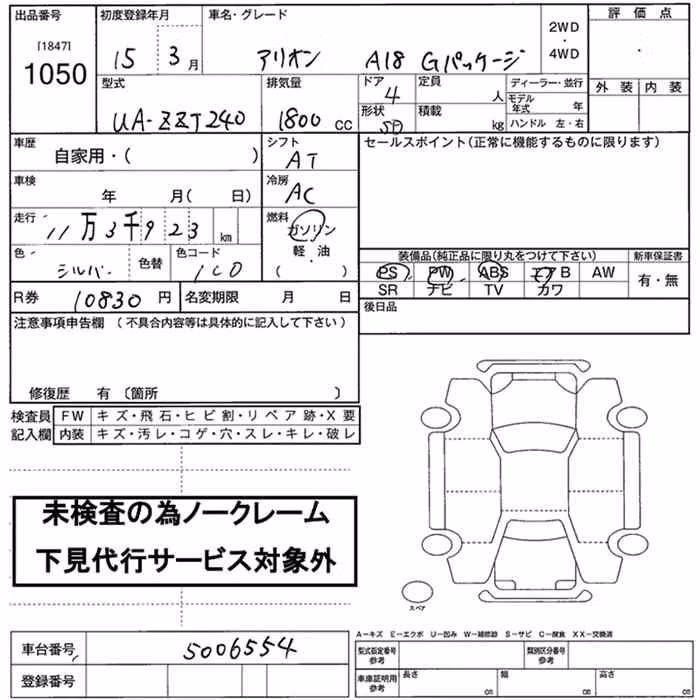 出品番号 初度登録年月 車名・グレード 評価点
[1847] 2WD
・
1050 15 3月 アリオン A18 Gパッケージ 4WD
型式 排気量 ドア 定員 ディーラー・並行 外装 内装
4 人 モデル年式 年
UA-ZZT240 1800 cc 形状 SD 積載 kg ハンドル 左・右
車歴 シフト セールスポイント(正常に機能するものに限ります)
自家用・( ) AT
車検 冷房
年 月( 日) AC
走行 燃料
11万3千923 km ガソリン
軽・油
( )
色 色替 色コード 装備品(純正品に限り丸をつけて下さい) 新車保証書
シルバー 1C0 PS PW ABS エアB AW 有・無
SR ナビ TV カワ
R券 10830円 名変期限 月 日 後日品
注意事項申告欄 (不具合内容等は具体的に記入して下さい)
修復歴 有 〔箇所 〕
検査員 FW キズ・飛石・ヒビ割・リペア跡・X要
記入欄 内装 キズ・汚レ・コゲ・穴・スレ・キレ・破レ
未検査の為ノークレーム
下見代行サービス対象外
スペア
A-キズ E-エクボ U-凹み W-補修跡 S-サビ C-腐食 XX-交換済
車台番号 5006554 型式指定番号 参考 類別区分番号 参考
登録番号 車庫証明用 参考 長さ cm 幅 cm 高さ cm